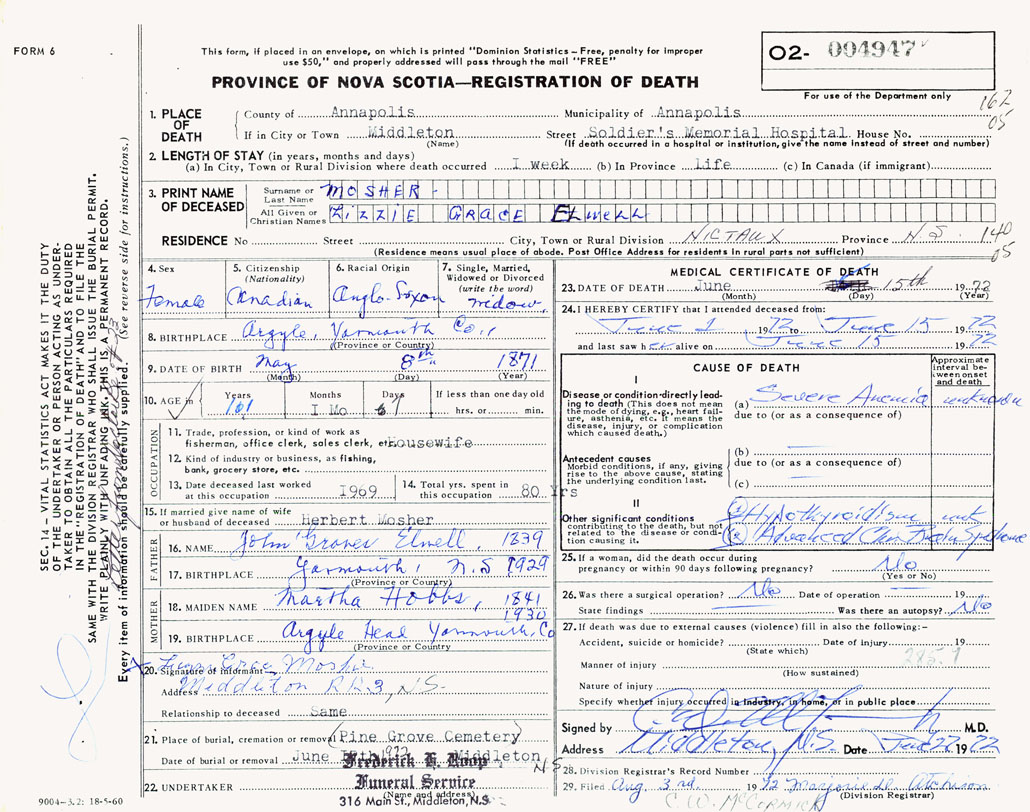 FORM 6
This form, if placed in an envelope, on which is printed "Dominion Statistics – Free, penalty for improper
use $50," and properly addressed will pass through the mail "FREE"
PROVINCE OF NOVA SCOTIA—REGISTRATION OF DEATH
O2- 004947
For use of the Department only
162
05
1. PLACE OF DEATH
County of Annapolis Municipality of Annapolis
If in City or Town Middleton Street Soldier's Memorial Hospital House No.
(Name) (If death occurred in a hospital or institution, give the name instead of street and number)
2. LENGTH OF STAY (in years, months and days)
(a) In City, Town or Rural Division where death occurred 1 week (b) In Province Life (c) In Canada (if immigrant)
3. PRINT NAME OF DECEASED
Surname or Last Name MOSHER -
All Given or Christian Names LIZZIE GRACE Elwell
RESIDENCE No Street City, Town or Rural Division NICTAUX Province N.S. 140
05
(Residence means usual place of abode. Post Office Address for residents in rural parts not sufficient)
4. Sex
Female
5. Citizenship
(Nationality)
Canadian
6. Racial Origin
Anglo-Saxon
7. Single, Married,
Widowed or Divorced
(write the word)
widow.
8. BIRTHPLACE Argyle, Yarmouth Co.,
(Province or Country)
9. DATE OF BIRTH May 8th 1871
(Month) (Day) (Year)
10. AGE in Years Months Days If less than one day old
101 1 Mo 7 hrs. or min.
OCCUPATION
11. Trade, profession, or kind of work as
fisherman, office clerk, sales clerk, etc. Housewife
12. Kind of industry or business, as fishing,
bank, grocery store, etc.
13. Date deceased last worked
at this occupation 1969
14. Total yrs. spent in
this occupation 80 Yrs
15. If married give name of wife
or husband of deceased Herbert Mosher
FATHER
16. NAME John Groves Elwell, 1839
17. BIRTHPLACE Yarmouth, N.S 1929
(Province or Country)
MOTHER
18. MAIDEN NAME Martha Hobbs, 1841
1930
19. BIRTHPLACE Argyle Head Yarmouth, Co
(Province or Country)
20. Signature of informant Grace Mosher
Address Middleton R.R.3, N.S.
Relationship to deceased Same
21. Place of burial, cremation or removal (Pine Grove Cemetery)
Date of burial or removal June 1972 Middleton N.S
22. UNDERTAKER Frederick H. Roop
Funeral Service
(Name and address)
316 Main St., Middleton, N.S.
9004–3.2: 18-5-60
MEDICAL CERTIFICATE OF DEATH
23. DATE OF DEATH June 15th 1972
(Month) (Day) (Year)
24. I HEREBY CERTIFY that I attended deceased from:
June 1 1972 to June 15 1972
and last saw her alive on June 15 1972
CAUSE OF DEATH
Approximate
interval be-
tween onset
and death
I
Disease or condition directly lead-
ing to death (This does not mean
the mode of dying, e.g., heart fail-
ure, asthenia, etc. It means the
disease, injury, or complication
which caused death.)
(a) Severe Anemia unknown
due to (or as a consequence of)
Antecedent causes
Morbid conditions, if any, giving
rise to the above cause, stating
the underlying condition last.
(b)
due to (or as a consequence of)
(c)
II
Other significant conditions
contributing to the death, but not
related to the disease or condi-
tion causing it.
(1) Hypothyroidism unk
(2) Advanced Chr. Brain Syndrome
25. If a woman, did the death occur during
pregnancy or within 90 days following pregnancy? No
(Yes or No)
26. Was there a surgical operation? No Date of operation 19
State findings Was there an autopsy? No
27. If death was due to external causes (violence) fill in also the following:–
Accident, suicide or homicide? Date of injury 19
(State which)
285.9
Manner of injury
(How sustained)
Nature of injury
Specify whether injury occurred in industry, in home, or in public place
Signed by M.D.
Address Middleton, N.S. Date June 22 1972
28. Division Registrar's Record Number
29. Filed Aug 3rd 1972 Marjorie D. Atchison
(Division Registrar)
C.W. McCormick
SEC. 14 – VITAL STATISTICS ACT MAKES IT THE DUTY
OF THE UNDERTAKER OR PERSON ACTING AS UNDER-
TAKER TO OBTAIN ALL THE PARTICULARS REQUIRED
IN THE "REGISTRATION OF DEATH" AND TO FILE THE
SAME WITH THE DIVISION REGISTRAR WHO SHALL ISSUE THE BURIAL PERMIT.
WRITE PLAINLY WITH UNFADING INK. THIS IS A PERMANENT RECORD.
Every item of information should be carefully supplied. (See reverse side for instructions.)